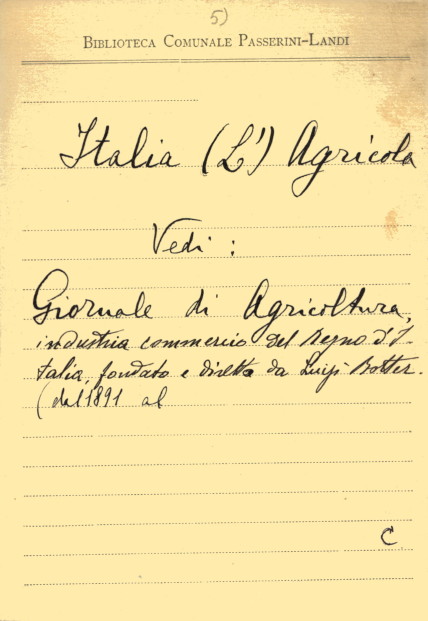 5)
BIBLIOTECA COMUNALE PASSERINI-LANDI
Italia (L') Agricola
Vedi :
Giornale di Agricoltura,
industria commercio del Regno d'I-
talia, fondato e diretto da Luigi Botter.
(dal 1891 al
C